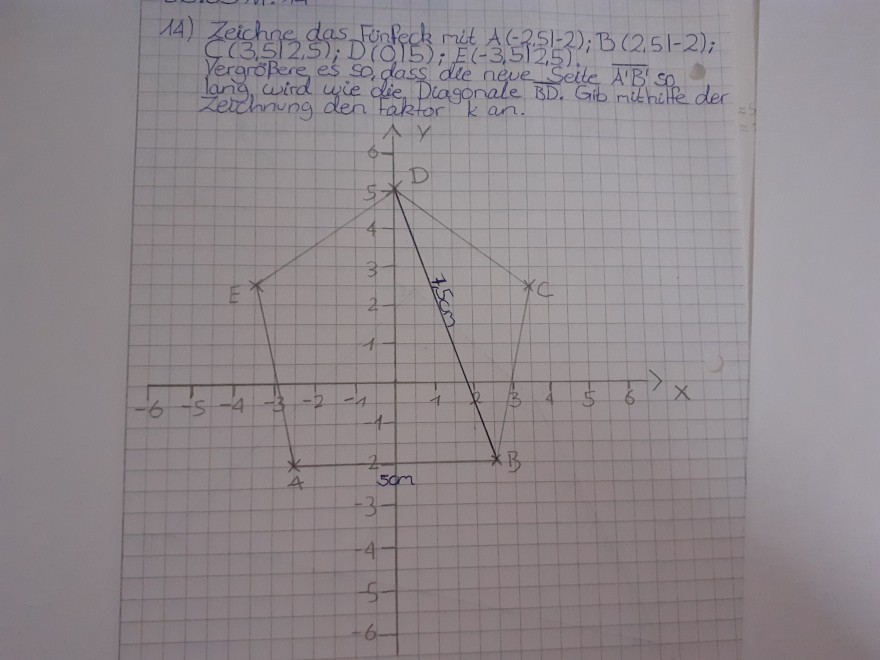 14) Zeichne das Fünfeck mit A(-2,5|-2); B(2,5|-2);
C(3,5|2,5); D(0|5); E(-3,5|2,5).
Vergrößere es so, dass die neue Seite A'B' so
lang wird wie die Diagonale BD. Gib mithilfe der
Zeichnung den Faktor k an.
Y
6
5
D
4
3
E
7,5cm
C
2
1
-6 -5 -4 -3 -2 -1 1 2 3 4 5 6 X
-1
A
-2
B
5cm
-3
-4
-5
-6